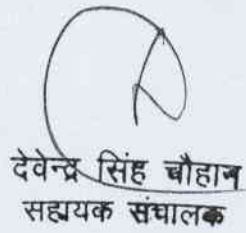 देवेन्द्र सिंह चौहान
सहायक संचालक